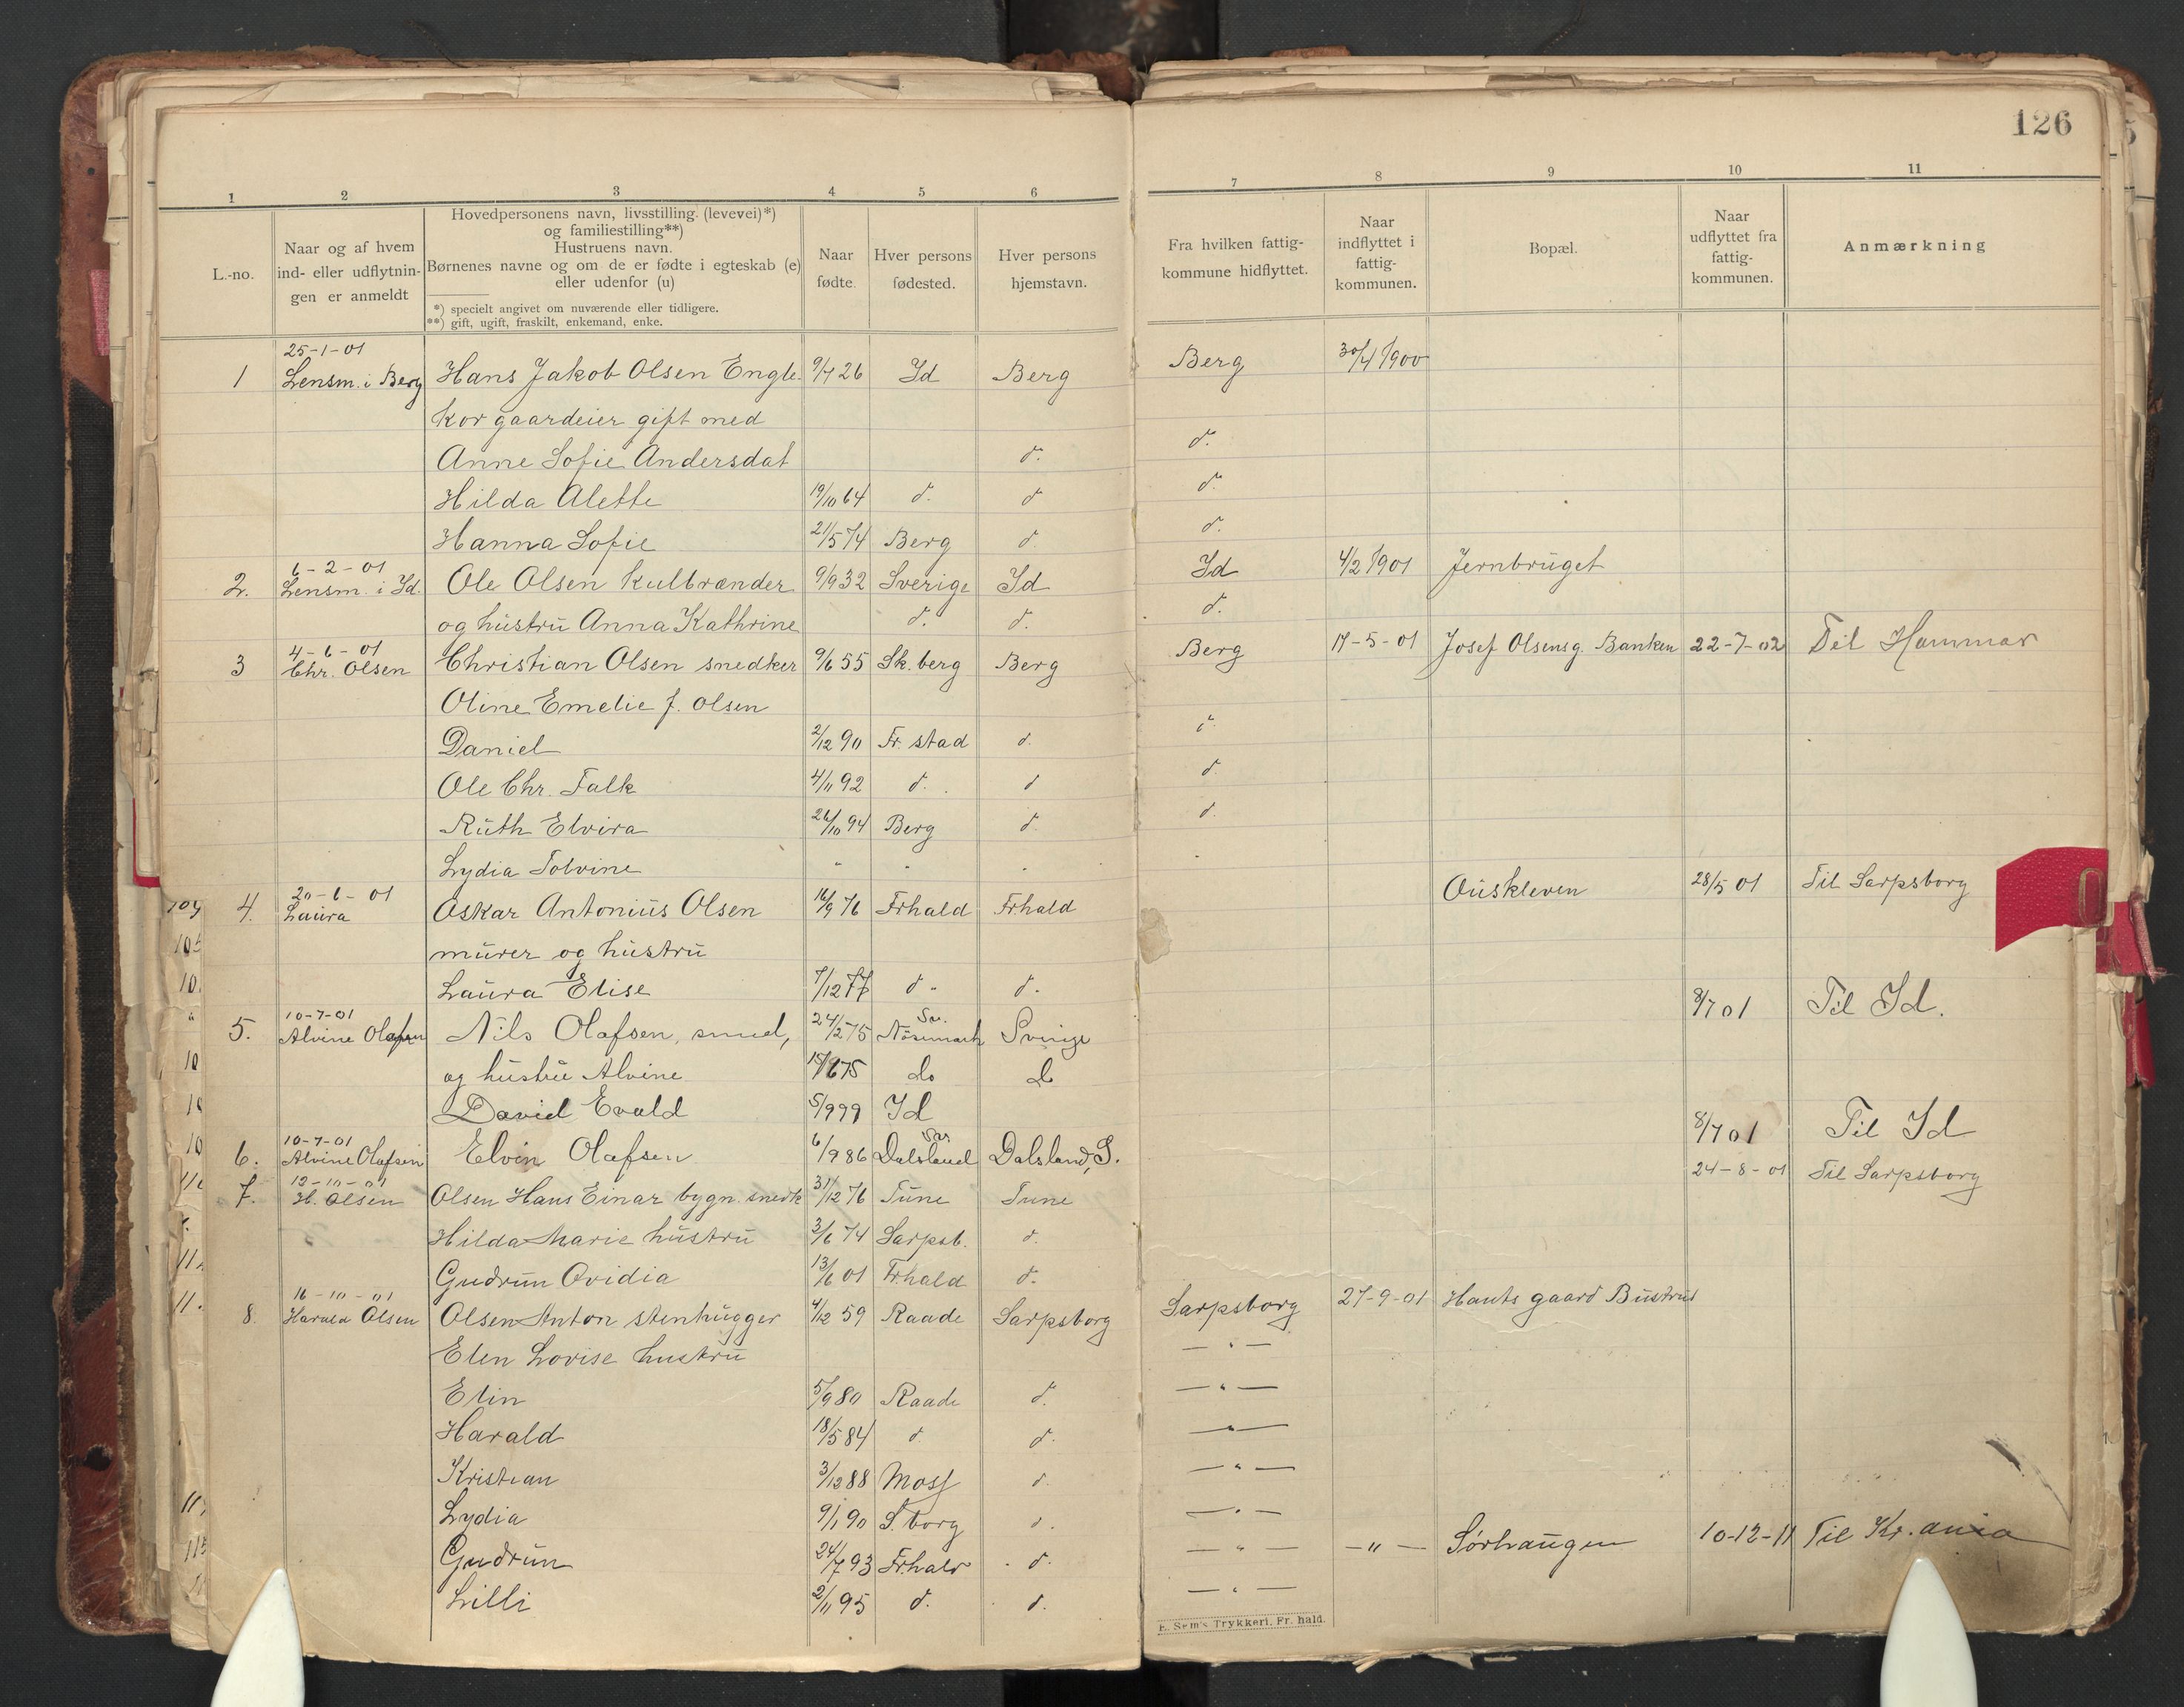 126
1 2 3 4 5 6 7 8 9 10 11
L.-no.
Naar og af hvem
ind- eller udflytnin-
gen er anmeldt
Hovedpersonens navn, livsstilling. (levevei)*)
og familiestilling**)
Hustruens navn.
Børnenes navne og om de er fødte i egteskab (e)
eller udenfor (u)
*) specielt angivet om nuværende eller tidligere.
**) gift, ugift, fraskilt, enkemand, enke.
Naar
fødte.
Hver persons
fødested.
Hver persons
hjemstavn.
Fra hvilken fattig-
kommune hidflyttet.
Naar
indflyttet i
fattig-
kommunen.
Bopæl.
Naar
udflyttet fra
fattig-
kommunen.
Anmærkning
25-1-01
1 Lensm. i Berg Hans Jakob Olsen Engle- 9/4 26 Id Berg Berg 30/4 1900
kor gaardeier gift med
Anne Sofie Andersdat d. d.
Hilda Alette 19/10 64 d. d d.
Hanna Sofie 21/5 74 Berg d. d.
6-2-01
2. Lensm. i Id. Ole Olsen kulbrænder 9/9 32 Sverige Id Id 4/2 1901 Jernbruget
og hustru Anna Kathrine d. d. d.
4-6-01
3 Chr. Olsen Christian Olsen snedker 9/6 55 Sk.berg Berg Berg 17-5-01 Josef Olsens g. Banken 22-7-02 Til Hammar
Oline Emelie f. Olsen
Daniel 2/12 90 Fr. stad d. d.
Ole Chr. Falk 4/11 92 d. d d
Ruth Elvira 26/10 94 Berg d. d.
Lydia Tolvine " " " "
20-6-01
4. Laura Oskar Antonius Olsen 16/9 76 Frhald Frhald Ouskleven 28/5 01 Til Sarpsborg
murer og hustru
Laura Elise 7/12 77 d. d.
10-7-01
5. Alvine Olafsen Nils Olafsen, smed, 24/2 75 Sv. Nösemark Sverige 8/7 01 Til Id.
og hustru Alvine 15/6 75 do do
David Evald 5/9 99 Id
10-7-01
6. Alvine Olafsen Elvin Olafsen 6/9 86 Dalsland Dalsland, S. 8/7 01 Til Id
12-10-01
7. H. Olsen Olsen Hans Einar bygn. snedk 31/12 76 Tune Tune 24-8-01 Til Sarpsborg
Hilda Marie hustru 3/6 74 Sarpsb. d.
Gudrun Ovidia 13/6 01 Frhald d.
16-10-01
8. Harald Olsen Olsen Anton stenhugger 4/12 59 Raade Sarpsborg Sarpsborg 27-9-01 Hauts gaard Bustrud
Elen Lovise hustru — " —
Elin 5/9 80 Raade d. — " —
Harald 18/5 84 d. d. — " —
Kristian 3/12 88 Moss d. — " —
Lydia 9/1 90 S.borg d. — " —
Gudrun 24/7 93 Frhald d. — " — — " — Sørhaugen 10-12-11 Til Kr.ania
Lilli 2/11 95 d. d. — " —
E. Sem's Trykkeri. Fr. hald.